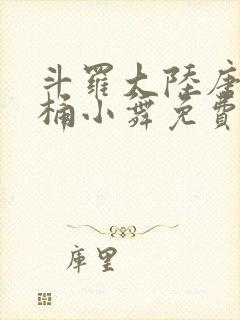 斗羅大陸唐
桶小舞免費
庫里